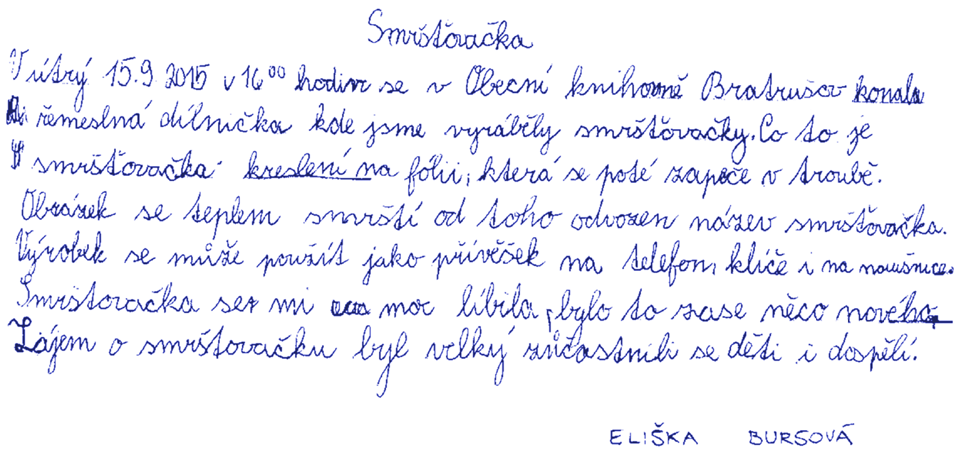 Smršťovačka
V útrý 15.9 2015 v 16⁰⁰ hodin se v Obecní knihovně Bratrušov konala
řemeslná dílnička kde jsme vyráběly smršťovačky. Co to je
smršťovačka: kreslení na fólii, která se poté zapeče v troubě.
Obrázek se teplem smrští od toho odvozen název smršťovačka.
Výrobek se může použít jako přívěšek na telefon, klíče i na noušnice.
Smršťovačka se mi moc líbila, bylo to zase něco nového.
Zájem o smršťovačku byl velký zůčastnili se děti i dospělí.
ELIŠKA BURSOVÁ